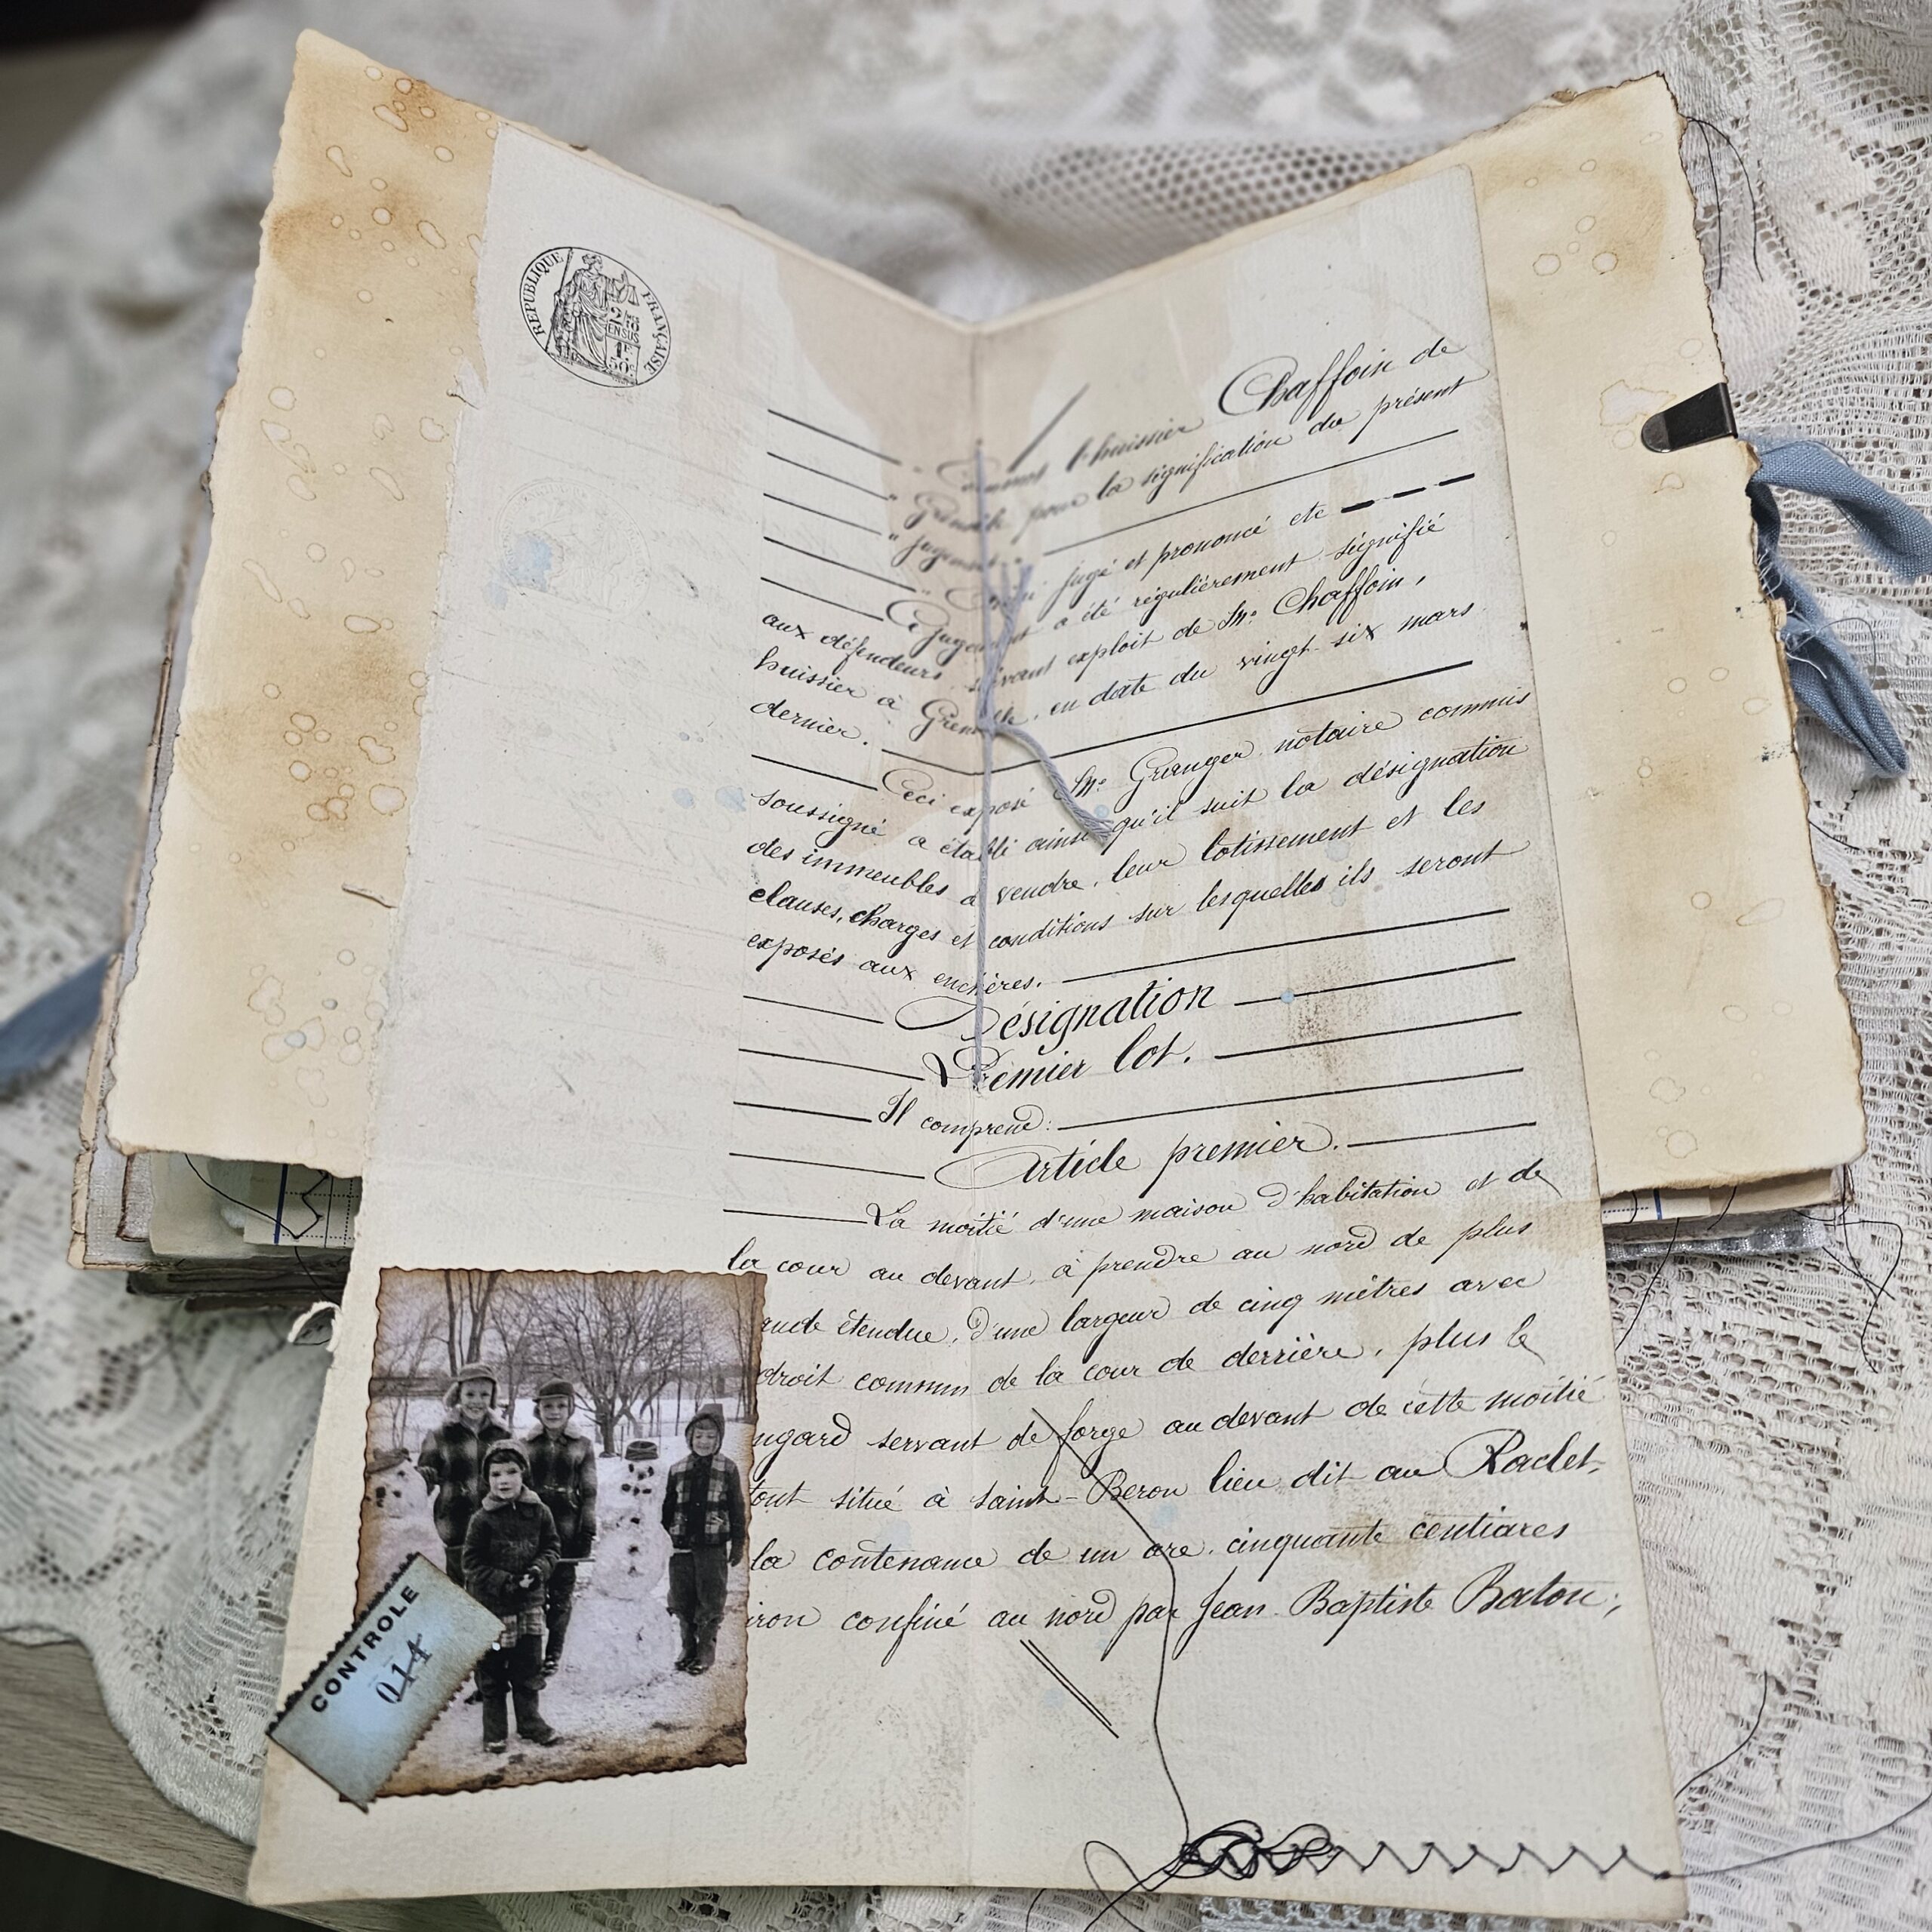 RÉPUBLIQUE FRANÇAISE
2/10
EN SUS
1F
50c
l'huissier Chaffoin de
pour la signification du présent
" jugement
jugé et prononcé etc
Ce jugement a été régulièrement signifié
aux défendeurs, suivant exploit de Me Chaffoin,
huissier à en date du vingt-six mars
dernier.
Ceci exposé Me Granger notaire commis
soussigné a établi ainsi qu'il suit la désignation
des immeubles à vendre, leur lotissement et les
clauses, charges et conditions sur lesquelles ils seront
exposés aux enchères.
Désignation
Premier lot.
Il comprend:
Article premier.
La moitié d'une maison d'habitation et de
la cour au devant, à prendre au nord de plus
ande étendue, d'une largeur de cinq mètres avec
droit commun de la cour de derrière, plus le
ngard servant de forge au devant de cette moitié
tout situé à Saint-Beron lieu dit au Raclet,
la contenance de un are cinquante centiares
iron confiné au nord par Jean Baptiste Baton;
CONTROLE
014